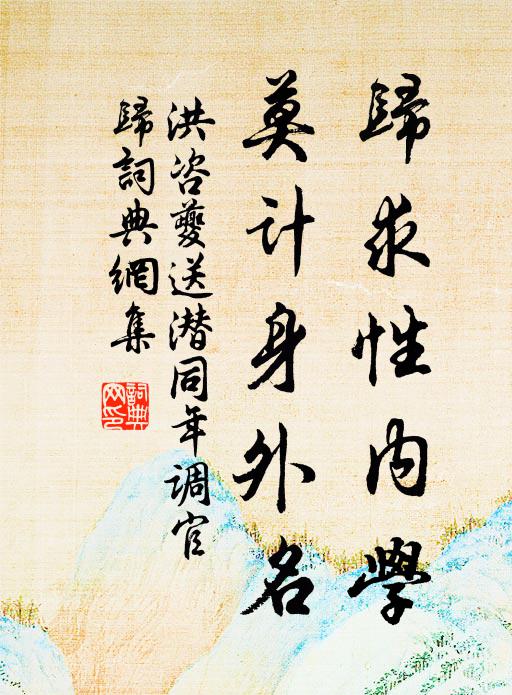 歸求性內學
莫計身外名
洪咨夔送潜同年調官
歸詞典網集
詞典網印